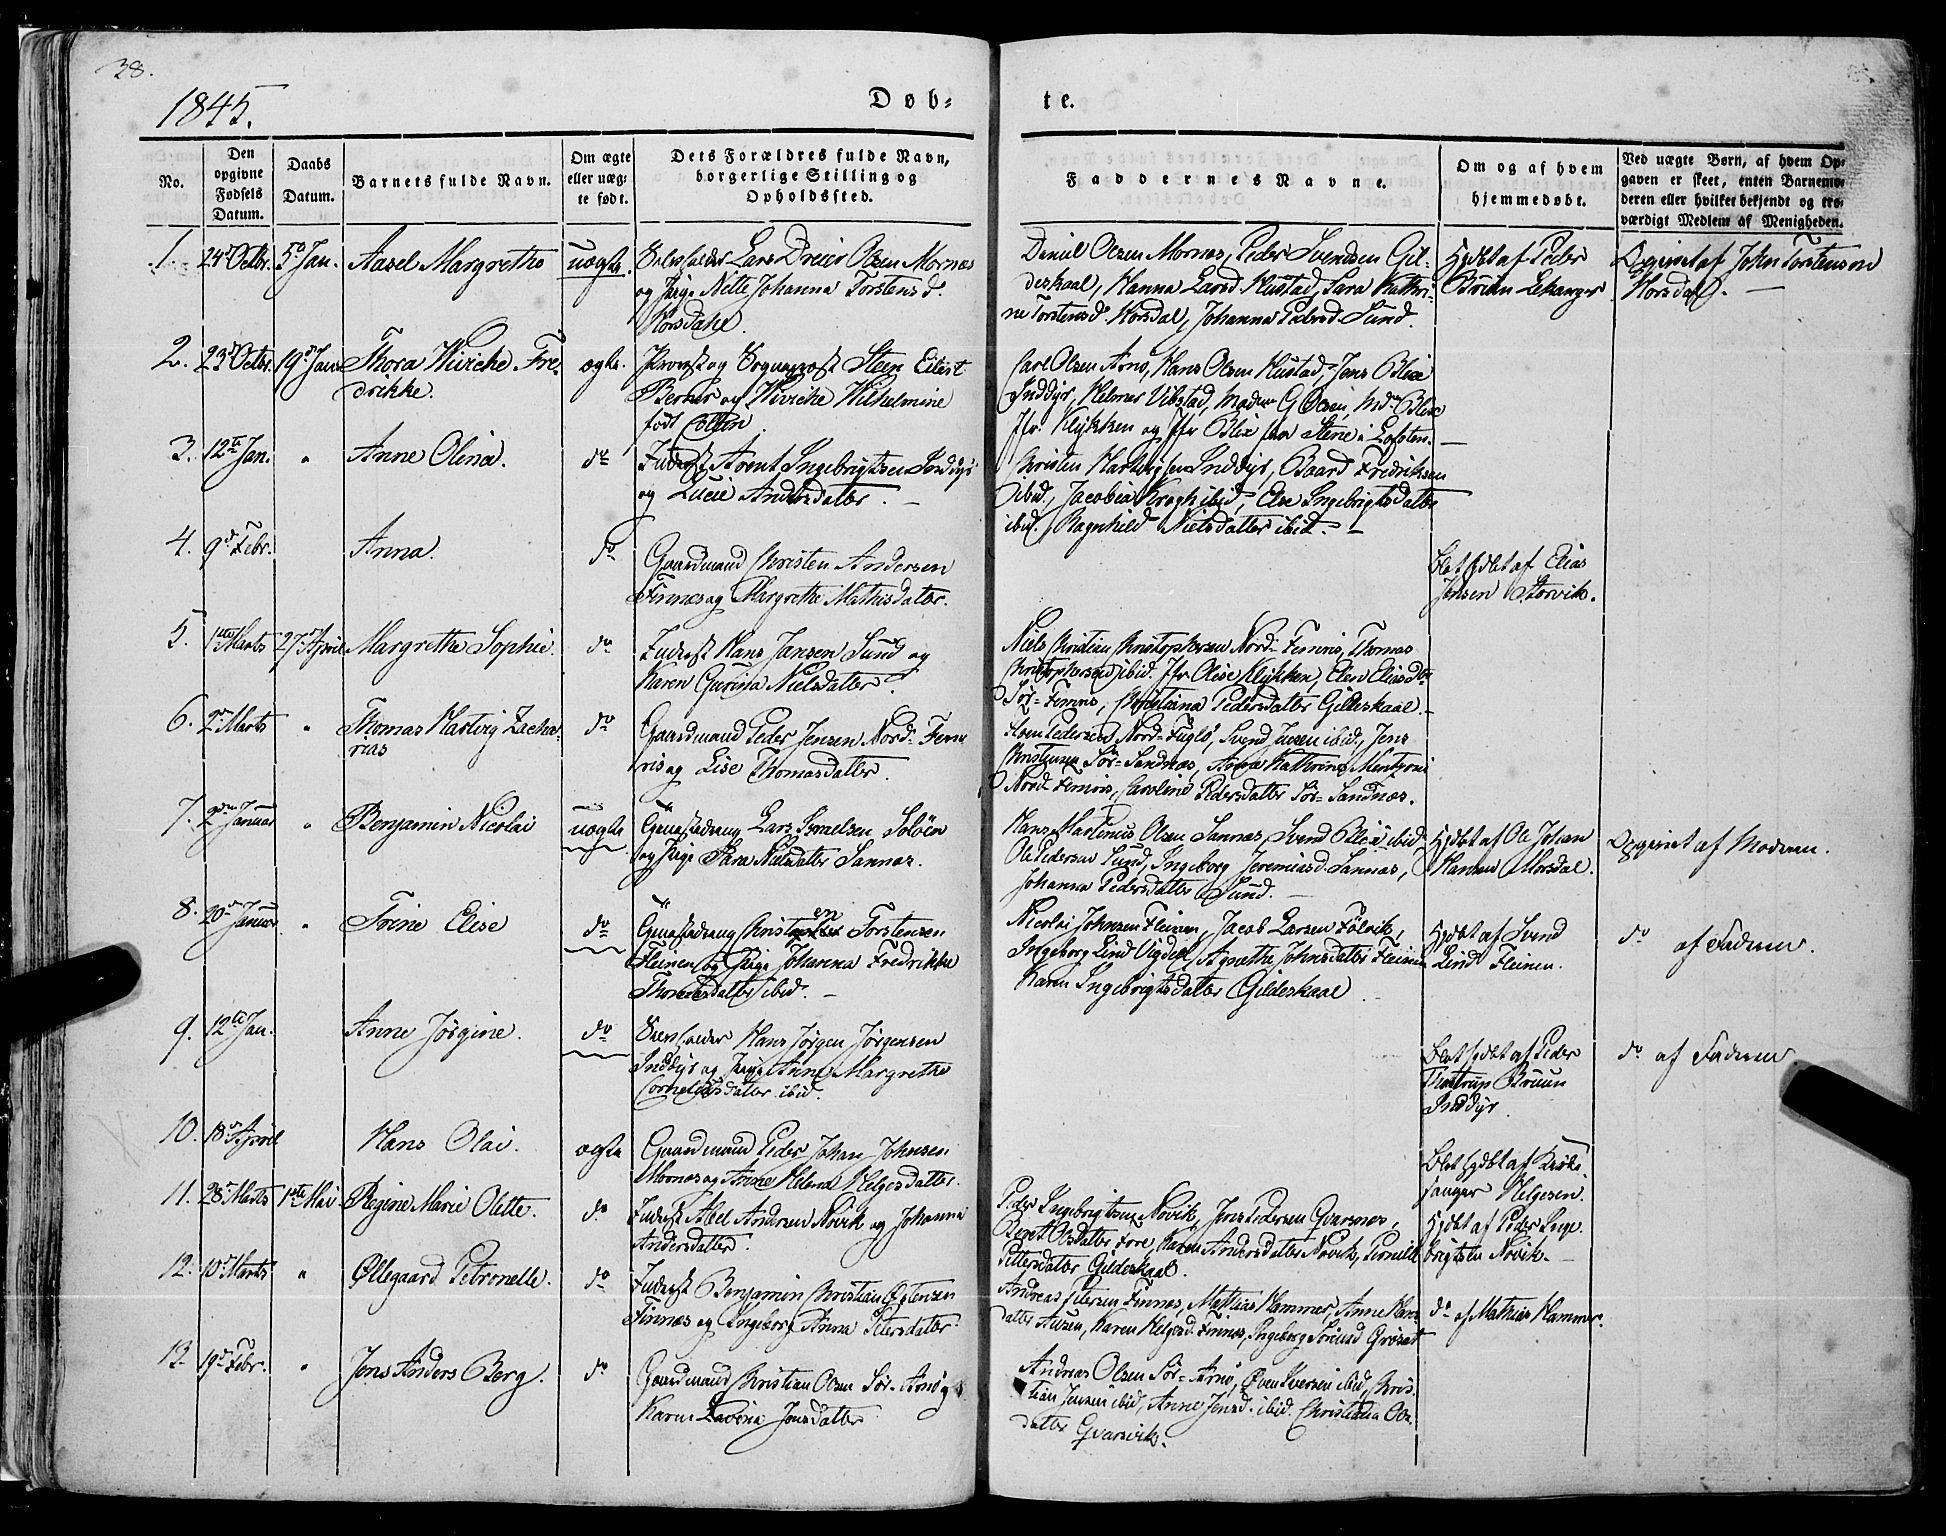 38.
1845.
Døb-
te.
No.
Den opgivne Fødsels Datum.
Daabs Datum.
Barnets fulde Navn.
Om ægte eller uæg-te født.
Dets Forældres fulde Navn, borgerlige Stilling og Opholdssted.
Faddernes Navne.
Om og af hvem hjemmedøbt.
Ved uægte Børn, af hvem Op-gaven er skeet, enten Barnemo-deren eller hvilket bekjendt og tro-værdigt Medlem af Menigheden.
1. 24de Octbr. 5te Jan. Aasel Margrethe uægte. Lars Dreier Olsen Mornæs
og Pige Nille Johanna Torstensd.
Horsdahl.
Daniel Olsen Mornæs, Peder Svendsen Gil-
deskaal, Hanna Larsd. Hustad, Sara Kathri-
ne Torstensd. Horsdal, Johanna Pedersd. Sund.
Hjdbt af Peder
Bruun Lekanger
Opgivet af John Torstensen
Horsdal. —
2. 23de Octbr. 19de Jan. Thora Wivicke Fre-
drikke.
ægte. Provst og Sognepræst Steen Eilert
Berner og Wivicke Wilhelmine
født Coltin
Carl Olsen Arnø, Hans Olsen Hustad, Jens Blix
Inddyr, Helmer Vibstad, Madm G Olsen, Mdm Blix
Jfr. Klykken og Jfr Blix fra Stene i Lofoten. —
3. 12te Jan. " Anne Olina. do Inderst Arent Ingebrigtsen Inddyr
og Lucie Andersdatter. —
Christen Hartvigsen Inddyr, Baard Fredriksen
ibid., Jacobia Krogh ibid, Else Ingebrigtsdatter
ibid. Ragnhild Nielsdatter ibid. —
4. 9de Febr. Anna. do Gaardmand Christen Andersen
Finnes og Margrethe Mathisdatter.
Blot hjdbt af Elias
Jensen Storvik.
5. 1ste Marts 27de April Margrethe Sophie. do Inderst Hans Jansen Sund og
Karen Gurina Nielsdatter.
Niels Christian Christophersen Nord-Femris, Thomas
Christophersen ibid. Jfr Olise Klykken, Elen Eliasdtr
Sør-Femris, Christiana Pedersdatter Gildeskaal. —
6. 2den Marts " Thomas Hartvig Zacha-
rias
do Gaardmand Peder Jensen Nord-Fem-
ris og Lise Thomasdatter.
Steen Pedersen Nord-Fuglø, Svend Jensen ibid., Jens
Christensen Sør-Sandnæs, Anne Kathrine Mentzoni
Nord-Femris, Caroline Pedersdatter Sør-Sandnæs.
7. 2den Januar " Benjamin Nicolai uægte Lars Israelsen Soløen
og Pige Sara Nielsdatter Sannæs.
Hans Martinus Olsen Sannæs, Svend Blix ibid,
Ole Pedersen Sund, Ingeborg Jeremiasd. Sannæs,
Johanna Pedersdatter Sund. —
Hjdbt af Ole Johan
Hansen Morsdal.
Opgivet af Moderen.
8. 20de Januar " Trine Elise do Torstensen
Fleinen og Pige Johanna Fredrikke
Thomesdatter ibid. —
Nicolai Johnsen Fleinen, Jacob Larsen Følvik,
Ingeborg Lind Vigdel, Agnethe Johnsdatter Fleinen
Karen Ingebrigtsdatter Gildeskaal.
Hjdbt af Svend
Lind Fleinen.
do af Faderen.
9. 12te Jan. Anne Jørgine. do Hans Jørgen Jørgensen
Inddyr og Pige Anne Margrethe
Corneliusdatter ibid.
Blot hjdbt af Peder
Thostrup Bruun
Inddyr.
do af Faderen
10. 18de April Hans Olai. ægte Gaardmand Peder Johan Johnsen
Mornæs og Anne Helena Helgesdatter.
Blot hjdbt af Kirke-
sanger Helgesen.
11. 28de Marts 1ste Mai. Regine Marie Olette. do Inderst Abel Andersen Novik og Johanna
Andersdatter.
Peder Ingebrigtsen Novik, Jens Pedersen Gvarsnæs,
Beret Olsdatter Fore, Karen Andersdatter Novik, Pernille
Pettersdatter Gildeskaal.
Hjdbt af Peder Inge-
brigtsen Novik. —
12. 10de Marts " Øllegaard Petronelle. do Inderst Benjamin Christian Østensen
Finnæs og Ingeborg Anna Petersdatter.
Andreas Petersen Finnæs, Mathias Hammer, Anne Hans-
datter Ausen, Karen Helgesd. Finnæs, Ingeborg Sørensd Grøsæt
do af Mathias Hammer.
13. 19de Febr. " Jens Anders Berg. do Gaardmand Christian Olsen Sør-Arnø og
Karen Lavina Jensdatter
Andreas Olsen Sør-Arnø, Even Iversen ibid, Chris-
tian Jensen ibid, Anne Jensd. ibid. Christiana Ols-
datter Gvarsvik.